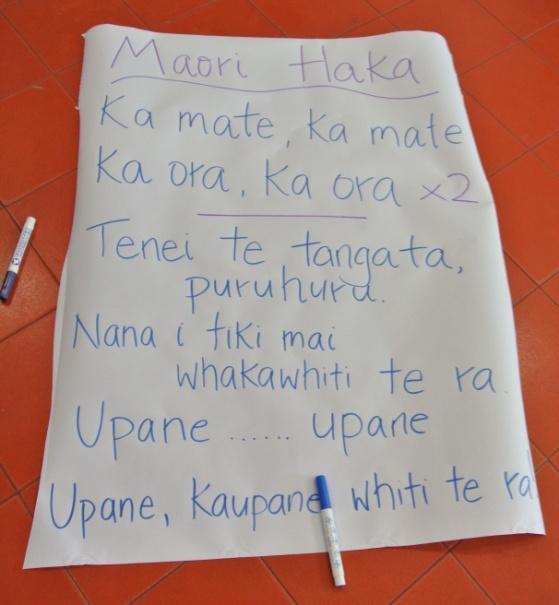 Maori Haka
Ka mate, Ka mate
Ka ora, Ka ora x2
Tenei te tangata,
puruhuru.
Nana i tiki mai
whakawhiti te ra.
Upane ...... upane
Upane, Kaupane whiti te ra!